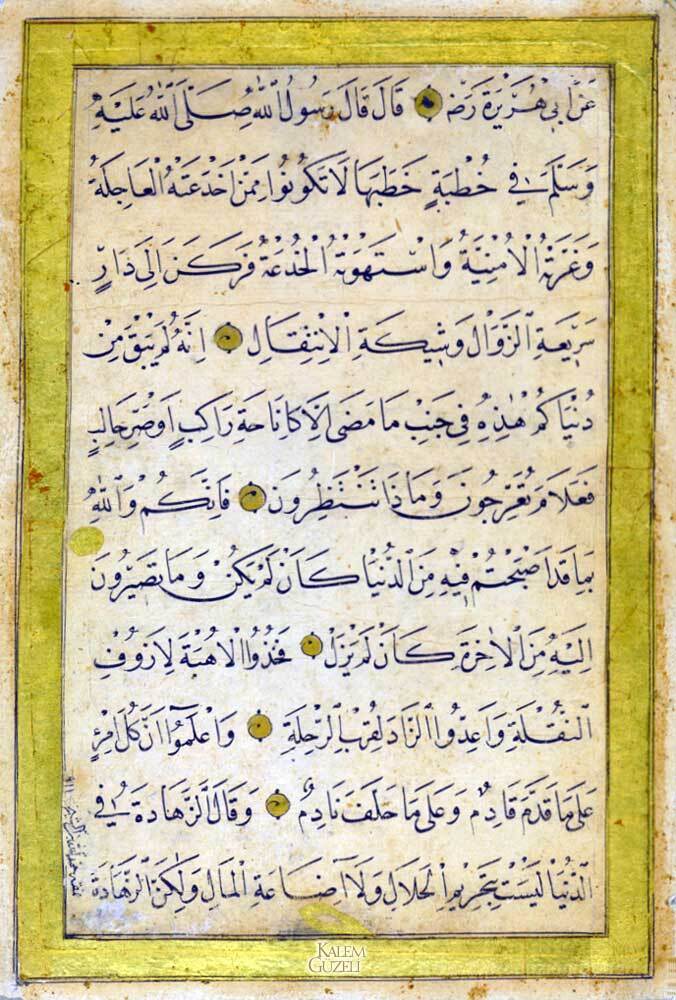 عَنْ اَبِى هُرَيْرَةَ رَضَ قَالَ قَالَ رَسُولُ اللّٰهِ صَلَّى اللّٰهُ عَلَيْهِ
وَسَلَّمَ فِى خُطْبَةٍ خَطَبَهَا لَا تَكُونُوا مِمَّنْ اَخْدَعَتْهُ الْعَاجِلَةُ
وَغَرَّتْهُ الْاُمْنِيَّةُ وَاسْتَهْوَتْهُ الْخُدْعَةُ فَرَكَنَ اِلَى دَارٍ
سَرِيعَةِ الزَّوَالِ وَشِيكَةِ الْاِنْتِقَالِ اِنَّهُ لَمْ يَبْقَ مِنْ
دُنْيَاكُمْ هٰذِهِ فِى جَنْبِ مَا مَضَى اِلَّا كَاِنَاحَةِ رَاكِبٍ اَوْ صَرِّ حَالِبٍ
فَعَلَامَ تُعَرِّجُونَ وَمَاذَا تَنْتَظِرُونَ فَاِنَّكُمْ وَاللّٰهِ
بِمَا قَدْ اَصْبَحْتُمْ فِيْهِ مِنَ الدُّنْيَا كَاَنْ لَمْ يَكُنْ وَمَا تَصِيرُونَ
اِلَيْهِ مِنَ الْاٰخِرَةِ كَاَنْ لَمْ يَزَلْ فَخُذُوا الْاُهْبَةَ لِاَزُوفِ
النُّقْلَةِ وَاَعِدُّوا الزَّادَ لِقُرْبِ الرِّحْلَةِ وَاعْلَمُوا اَنَّ كُلَّ امْرِئٍ
عَلَى مَا قَدَّمَ قَادِمٌ وَعَلَى مَا خَلَفَ نَادِمٌ وَقَالَ الزَّهَادَةُ فِى
الدُّنْيَا لَيْسَتْ بِتَحْرِيمِ الْحَلَالِ وَلَا اِضَاعَةِ الْمَالِ وَلٰكِنَّ الزَّهَادَةَ
KALEM
GÜZELİ